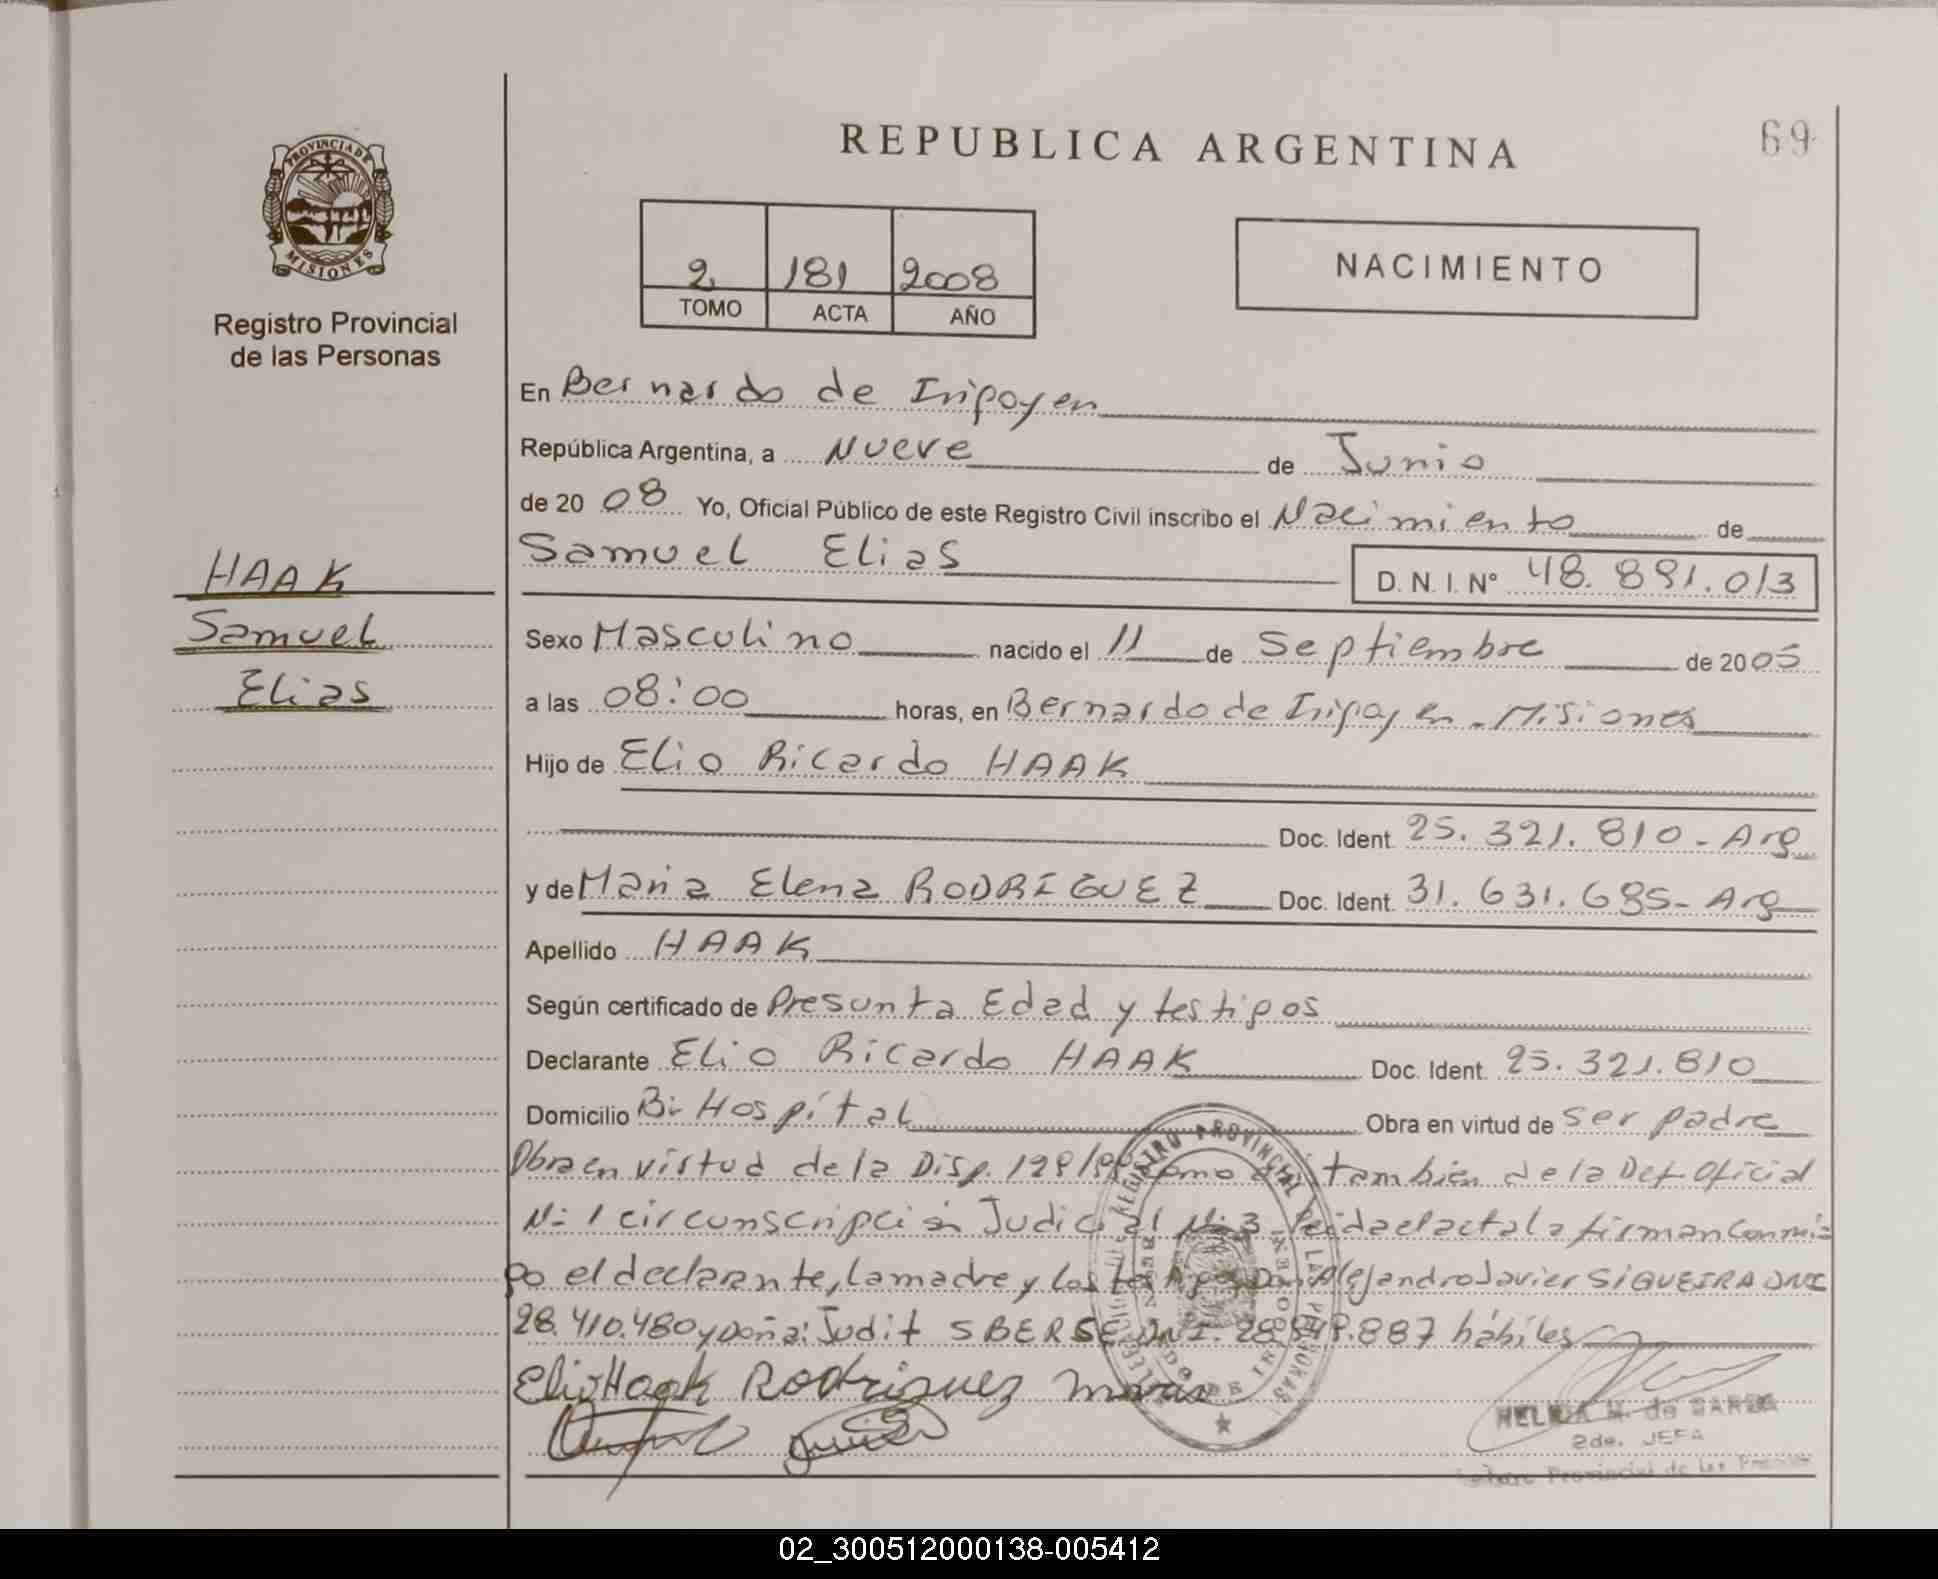 REPUBLICA ARGENTINA
69
PROVINCIA DE
MISIONES
Registro Provincial
de las Personas
2 181 2008
TOMO ACTA AÑO
NACIMIENTO
En Bernardo de Irigoyen
República Argentina, a Nueve de Junio
de 20 08 Yo, Oficial Público de este Registro Civil inscribo el Nacimiento de
Samuel Elias D. N. I. N° 48.891.013
HAAK
Samuel
Elias
Sexo Masculino nacido el 11 de Septiembre de 2005
a las 08:00 horas, en Bernardo de Irigoyen - Misiones
Hijo de Elio Ricardo HAAK
Doc. Ident. 25.321.810 - Arg
y de Maria Elena RODRIGUEZ Doc. Ident. 31.631.685 - Arg
Apellido HAAK
Según certificado de Presunta Edad y testigos
Declarante Elio Ricardo HAAK Doc. Ident. 25.321.810
Domicilio B: Hospital Obra en virtud de ser padre
Obra en virtud de la Disp. como también de la Def. Oficial
N: 1 circunscripción Judicial N: 3 leida el acta la firman conmi
go el declarante, la madre y los testigos Don Alejandro Javier SIQUEIRA DNI
28.410.480 y Doña: Judit SBERSE DNI. hábiles
Elio Haak Rodriguez Maria
REGISTRO PROVINCIAL DE LAS PERSONAS
BERNARDO DE IRIGOYEN
2da. JEFA
Provincial de las
02_300512000138-005412